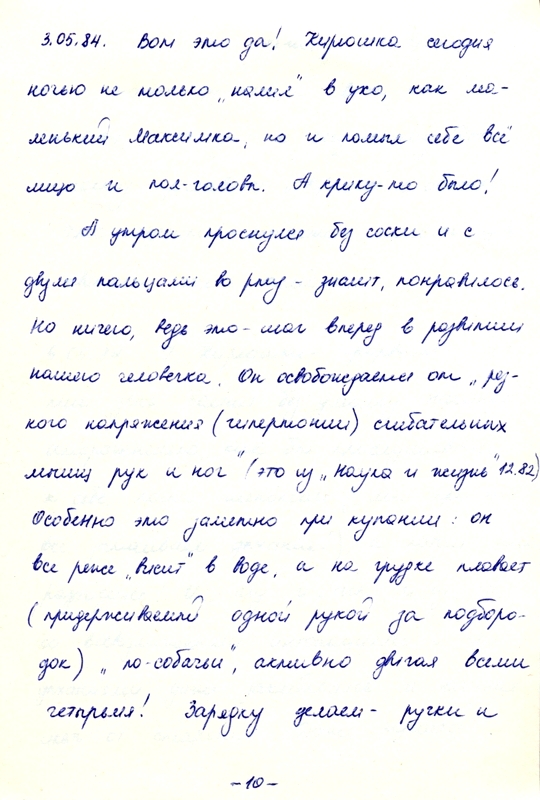 3.05.84. Вот это да! Кирюшка сегодня
ночью не только „налил" в ухо, как ма-
ленький Максимка, но и помыл себе всё
лицо и пол-головы. А крику-то было!
А утром проснулся без соски и с
двумя пальцами во рту - значит, понравилось.
Но ничего, ведь это - шаг вперед в развитии
нашего человечка. Он освобождается от „рез-
кого напряжения (гипертонии) сгибательных
мышц рук и ног" (это из „Наука и жизнь" 12.82)
Особенно это заметно при купании: он
все реже „висит" в воде, а на грудке плавает
(придерживаемый одной рукой за подборо-
док) „по-собачьи", активно двигая всеми
четырьмя! Зарядку делаем - ручки и
-10-